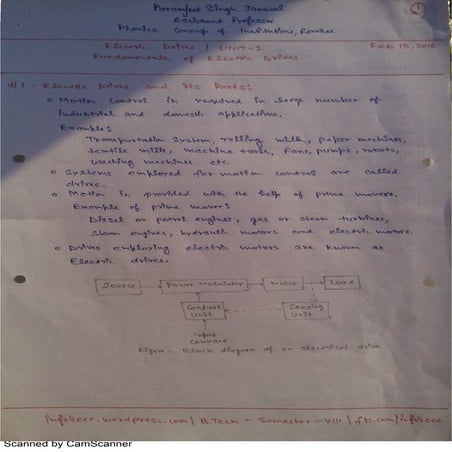 Paramjeet Singh Jamwal
Assistant Professor
Phonics Group of Institutions, Roorkee
Electric Drive | UNIT-1 Feb 15, 2016
Fundamentals of Electric Drives
#1 - Electric Drive and Its Parts:
Motion control is required in large number of
industrial and domestic applications.
Example:
Transportation System, rolling mills, paper machines,
textile mills, machine tools, Fans, pumps, robots,
washing machines etc
Systems employed for motion control are called
drives.
Motion is provided with the help of prime movers.
Example of prime movers
Diesel or petrol engines, gas or steam turbines,
steam engines, hydraulic motors and electric motors.
Drives employing electric motors are known as
Electric drives.
Source Power Modulator Motor Load
Control Unit Sensing Unit
Input
Command
Figure. Block diagram of an electrical drive
info4eee.wordpress.com | B.Tech - Semester-VIII | fb.com/info4eee
Scanned by CamScanner